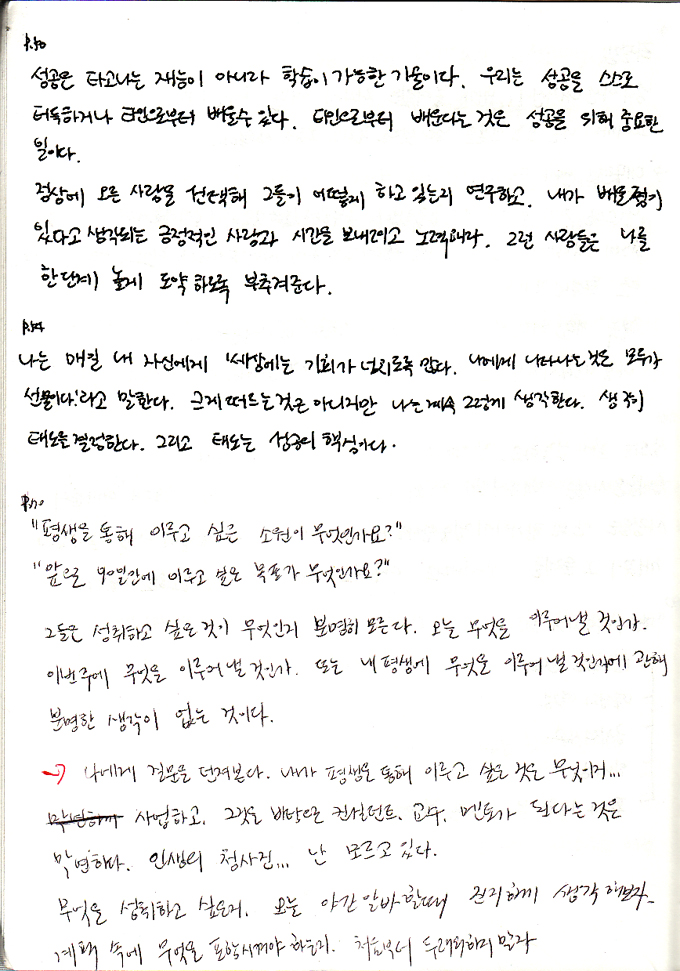 P.50
성공은 타고나는 재능이 아니라 학습이 가능한 기술이다. 우리는 성공을 스스로
터득하거나 타인으로부터 배울수 있다. 타인으로부터 배운다는 것은 성공을 위해 중요한
일이다.
정상에 오른 사람을 선택해 그들이 어떻게 하고 있는지 연구하고. 내가 배울점이
있다고 생각되는 긍정적인 사람과 시간을 보내려고 노력해라. 그런 사람들은 나를
한단계 높게 도약 하도록 부추겨준다.
P.54
나는 매일 내 자신에게 '세상에는 기회가 넘치도록 많다. 나에게 나타나는것은 모두가
선물이다.'라고 말한다. 크게 떠드는것은 아니지만 나는 계속 그렇게 생각한다. 생각이
태도를 결정한다. 그리고 태도는 성공의 핵심이다.
P.70
"평생을 통해 이루고 싶은 소원이 무엇인가요?"
"앞으로 90일간에 이루고 싶은 목표가 무엇인가요?"
그들은 성취하고 싶은 것이 무엇인지 분명히 모른다. 오늘 무엇을 이루어낼 것인가.
이번주에 무엇을 이루어 낼 것인가. 또는 내 평생에 무엇을 이루어 낼 것인가에 관해
분명한 생각이 없는 것이다.
→ 나에게 질문을 던져본다. 내가 평생을 통해 이루고 싶은 것은 무엇이지...
사업하고, 그것을 바탕으로 컨설턴트. 교수. 멘토가 된다는 것은
막연하다. 인생의 청사진... 난 모르고 있다.
무엇을 성취하고 싶은지. 오늘 야간알바 할때 진지하게 생각해보자.
계획 속에 무엇을 포함시켜야 하는지. 처음부터 두려워하지 말자